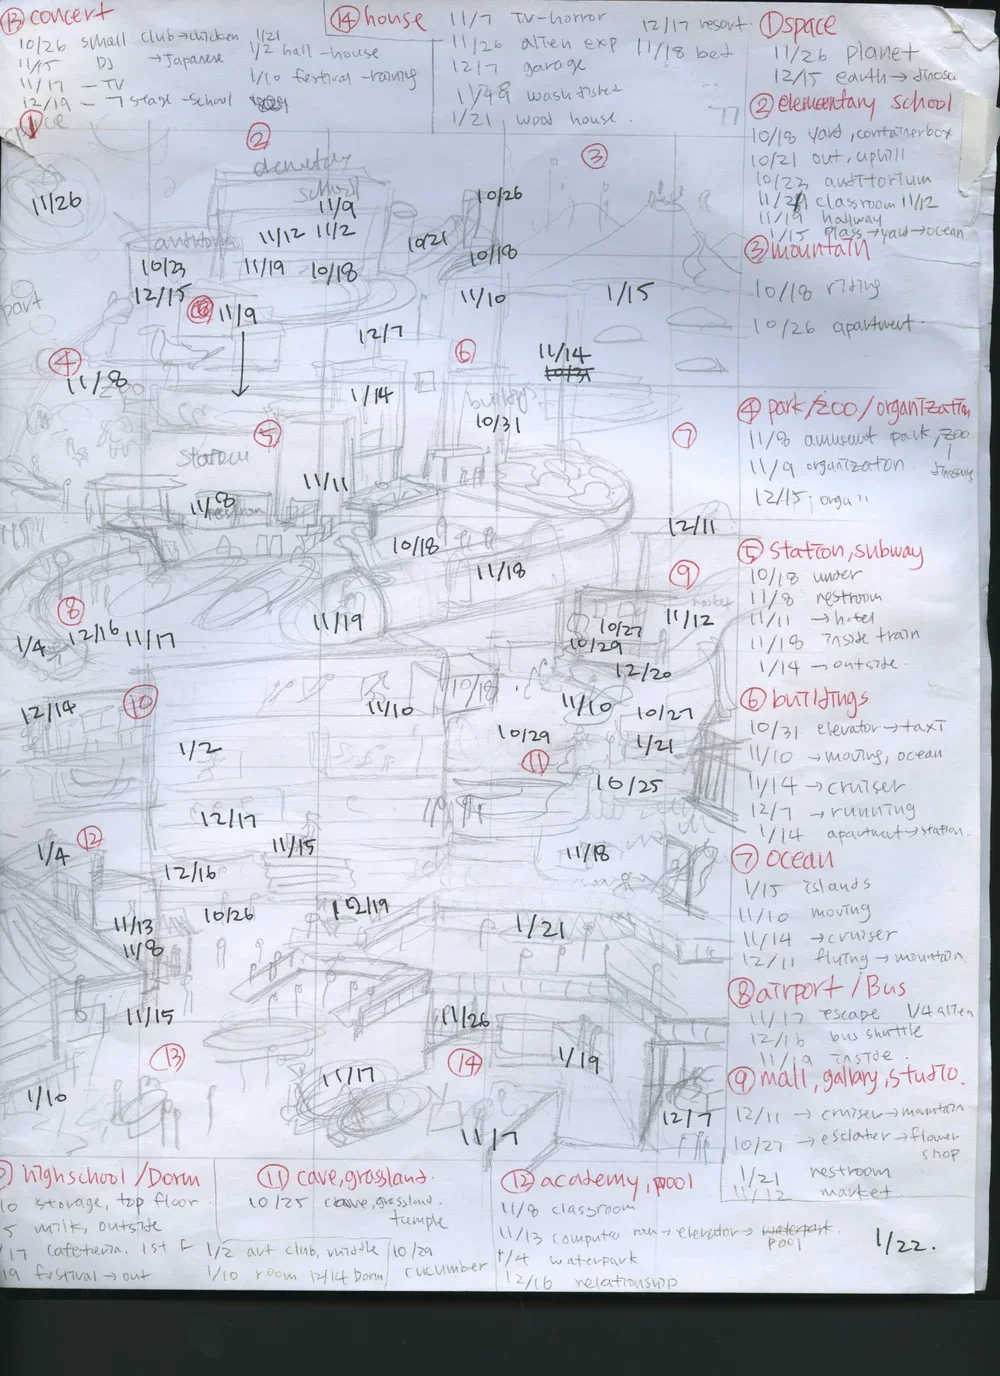 ⑬ concert
10/26 small club→chicken 1/21
11/15 DJ →Japanese
11/17 - TV
12/19 - 7 stage - school
1/2 hall - house
1/10 festival - raining
⑭ house
11/7 TV-horror
11/26 alien exp
12/7 garage
wash
1/21, wood house.
12/17 resort.
11/18 bed
① space
11/26 planet
12/15 earth →
② elementary school
10/18 yard, containerbox
10/21 out, uphill
10/23 auditorium
classroom 11/12
11/19 hallway
1/15 glass→yard→ocean.
③ mountain
10/18 riding
10/26 apartment.
④ park/zoo/organization
11/8 amusement park, zoo
11/9 organization.
12/15,
⑤ station, subway
10/18 under
11/8 restroom
11/11 →hotel
11/18 inside train
1/14 → outside.
⑥ buildings
10/31 elevator → taxi
11/10 → moving, ocean
11/14 → cruiser
12/7 → running
1/14 apartment→station.
⑦ ocean
1/15 islands
11/10 moving
11/14 →cruiser
12/11 flying → mountain.
⑧ airport / Bus
11/17 escape 1/4 alien
12/16 bus shuttle
11/19 inside.
⑨ mall, gallary, studio.
12/11 → cruiser→mountain
10/27 → esclater → flower
shop
1/21 restroom
11/12 market.
①
②
③
elementary
school
11/26
11/9
10/26
11/12 11/2
10/21
10/23
11/19
10/18
10/18
12/15
11/9
11/10
1/15
12/7
④
⑥
11/14
10/31
11/8
1/14
buildings
10/31
⑤
⑦
station
11/11
11/8
12/11
10/18
11/18
⑨
⑧
11/19
11/12
10/27
1/4 12/16 11/17
10/29
12/20
10/18
12/14
⑩
11/10
11/10
10/27
1/2
10/29
1/21
⑪
10/25
12/17
⑫
1/4
11/15
11/18
12/16
10/26
12/19
11/13
11/8
1/21
11/15
11/26
⑬
⑭
1/19
11/17
1/10
12/7
11/7
highschool / Dorm
storage, top floor
milk, outside
cafeteria. 1st F
festival → out
1/2 art club, middle
1/10 room 12/14 Dorm
⑪ cave, grassland.
10/25 cave, grassland.
temple
10/29
cucumber
⑫ academy, pool
11/8 classroom
11/13 computer → elevator → waterpark.
pool
1/4 waterpark
12/16 relationship
1/22.